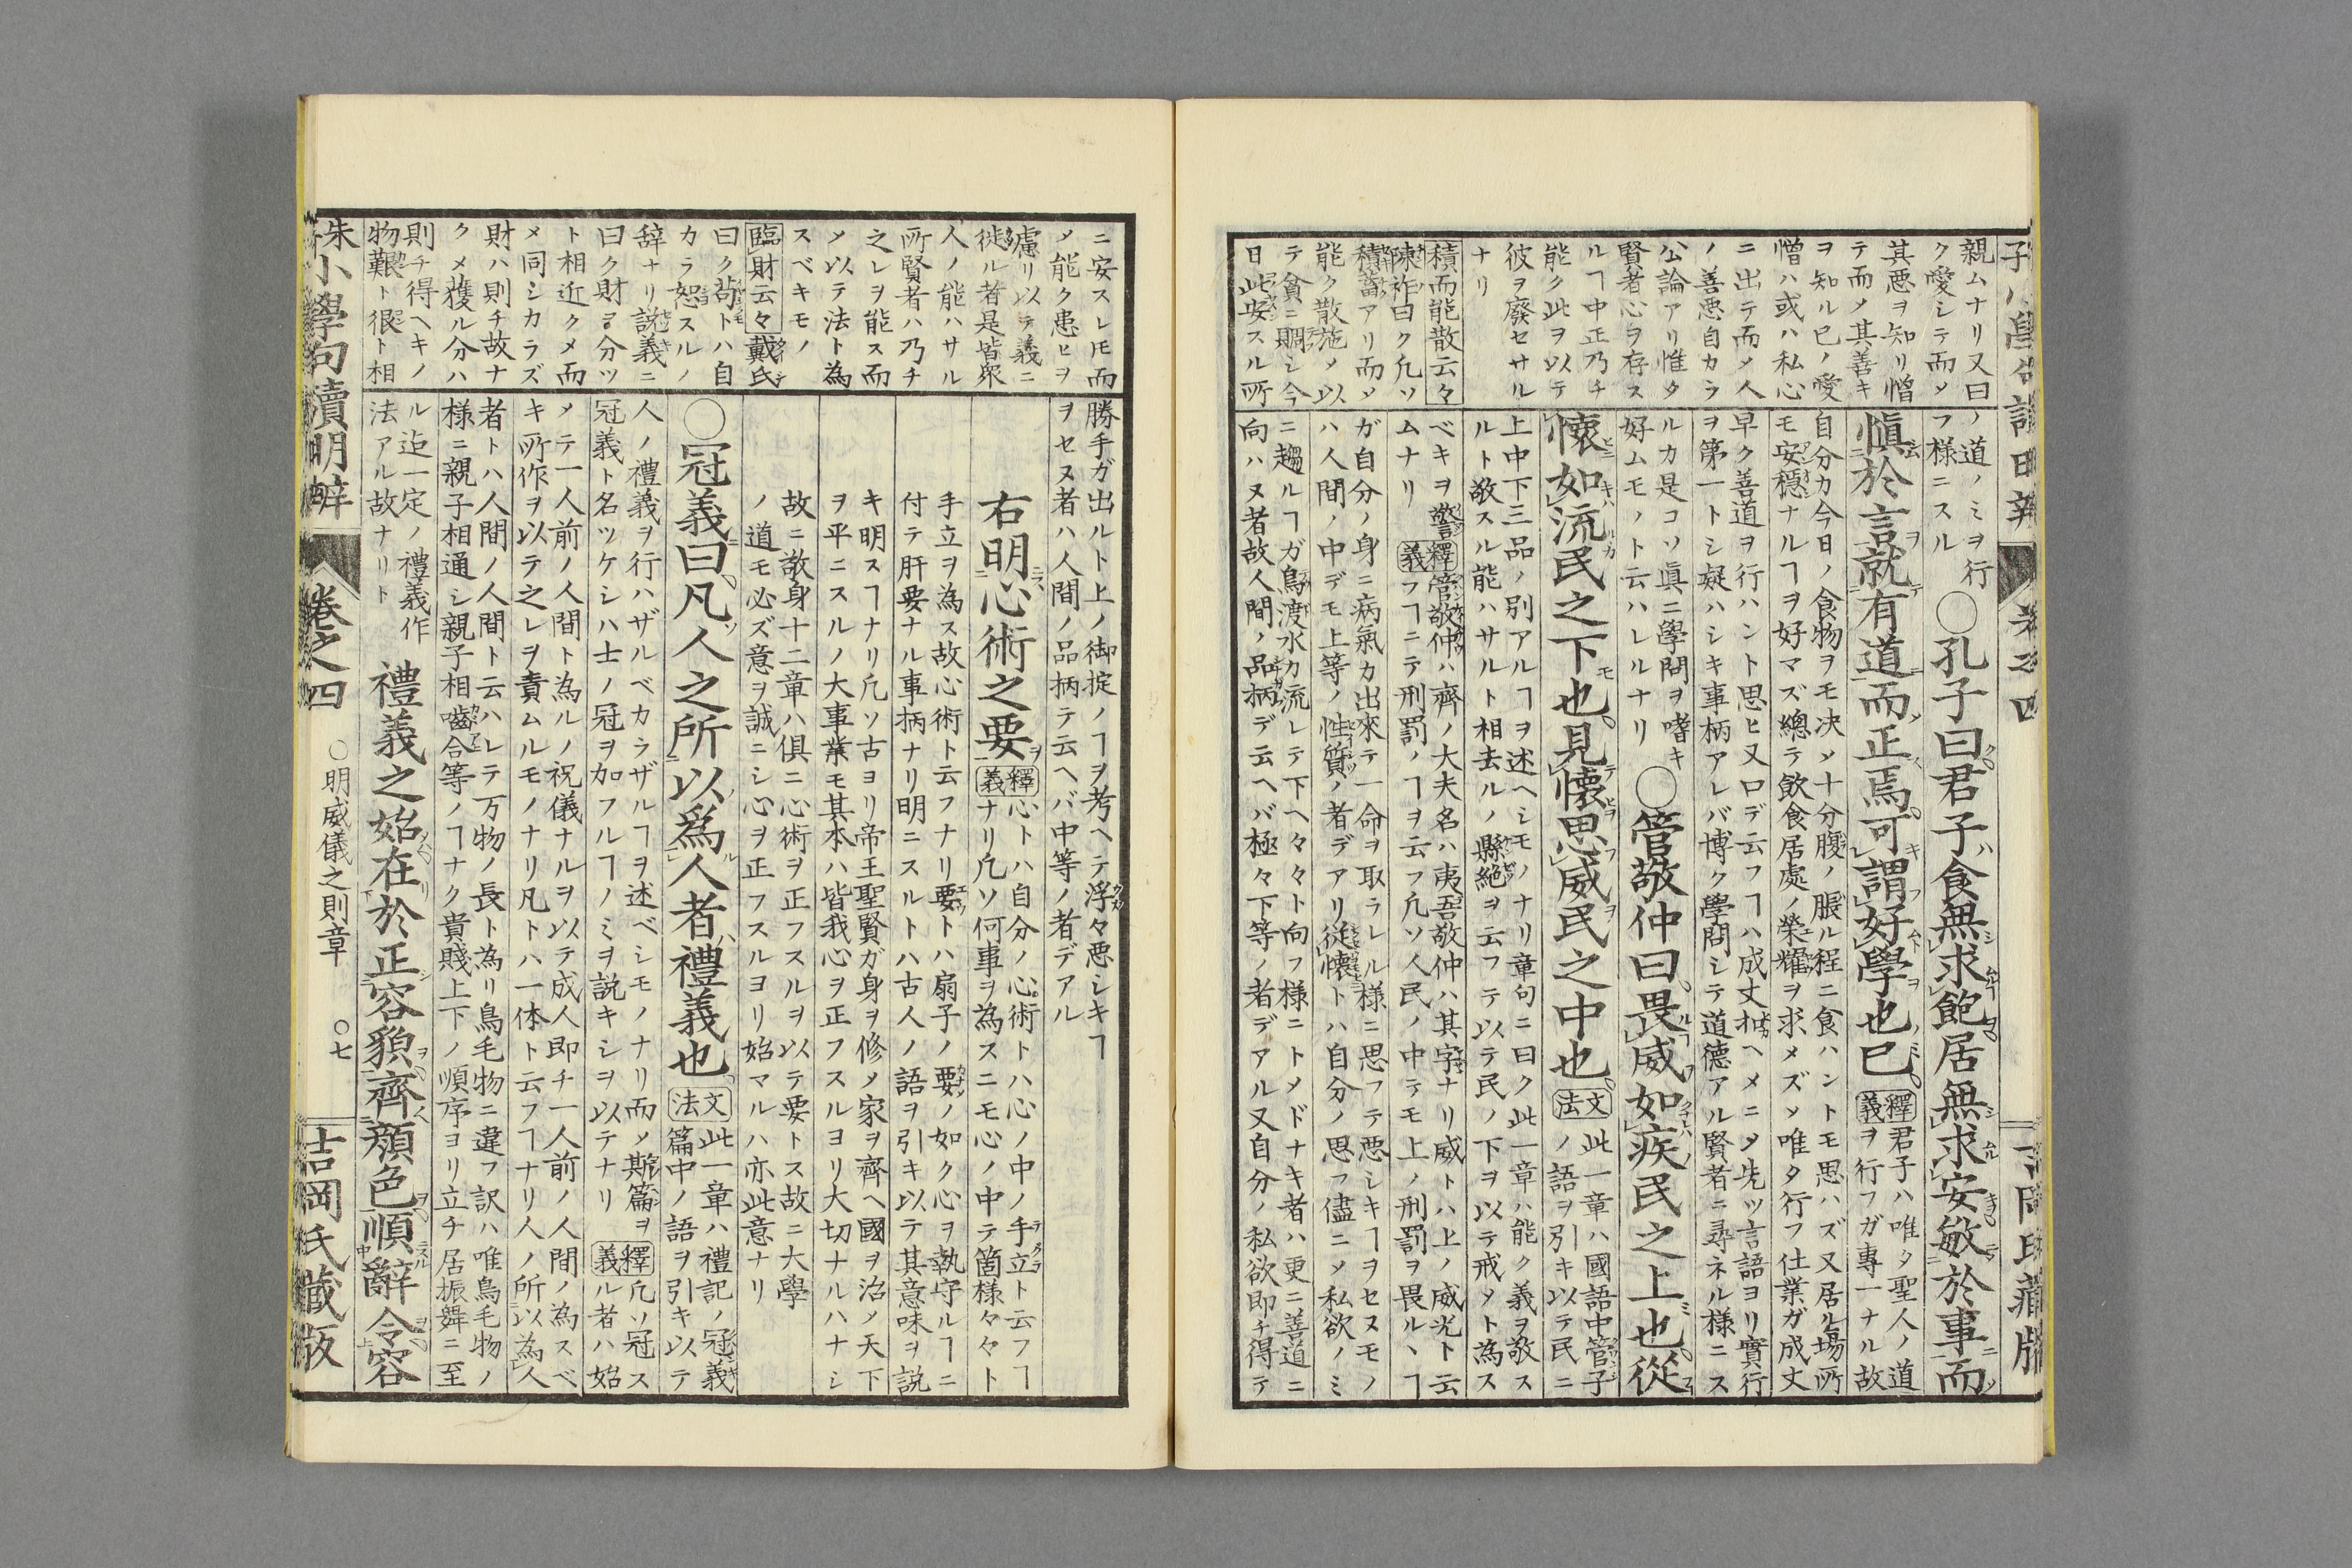 親ムナリ又曰
ク愛シテ而メ
其悪ヲ知リ憎
テ而メ其善キ
ヲ知ル已ノ愛
憎ハ或ハ私心
ニ出テ而メ人
ノ善悪自カラ
公論アリ惟タ
賢者心ヲ存ス
ルヿ中正乃チ
能ク此ヲ以テ
彼ヲ廢セサル
ナリ
積而能散云々
陳祚曰ク凢ソ
積畜アリ而メ
能ク散施メ以
テ貧ニ賙シ今
日此安スル所
ノ道ノミヲ行
フ樣ニスル
○孔子曰君子食無求飽居無求安敏於事而
愼於言就有道而正焉可謂好學也已
釋義
君子ハ唯タ聖人ノ道
ヲ行フガ專一ナル故
自分カ今日ノ食物ヲモ决メ十分腹ノ脹ル程ニ食ハントモ思ハズ又居ル場所
モ安穩ナルヿヲ好マズ總テ飲食居處ノ榮耀ヲ求メズメ唯タ行フ仕業ガ成丈
早ク善道ヲ行ハント思ヒ又口デ云フヿハ成丈扣ヘメニメ先ツ言語ヨリ實行
ヲ第一トシ疑ハシキ事柄アレバ博ク學問シテ道德アル賢者ニ尋ネル樣ニス
ルカ是コソ眞ニ學問ヲ嗜キ
好ムモノト云ハレルナリ
○管敬仲曰畏威如疾民之上也從
懷如流民之下也見懷思威民之中也
文法
此一章ハ國語中管子
ノ語ヲ引キ以テ民ニ
上中下三品ノ別アルヿヲ述ヘシモノナリ章句ニ曰ク此一章ハ能ク義ヲ敬ス
ルト敬スル能ハサルト相去ルノ縣絕ヲ云フテ以テ民ノ下ヲ以テ戒メト為ス
ベキヲ警
ムナリ
釋義
管敬仲ハ齊ノ大夫名ハ夷吾敬仲ハ其字ナリ威トハ上ノ威光ト云
フヿニテ刑罰ノヿヲ云フ凢ソ人民ノ中テモ上ノ刑罰ヲ畏ルヽヿ
ガ自分ノ身ニ病氣カ出來テ一命ヲ取ラレル樣ニ思フテ悪シキヿヲセヌモノ
ハ人間ノ中デモ上等ノ性質ノ者デアリ從懷トハ自分ノ思フ儘ニメ私欲ノミ
ニ趨ルヿガ鳥渡水カ流レテ下ヘ々々ト向フ樣ニトメドナキ者ハ更ニ善道ニ
向ハヌ者故人間ノ品柄デ云ヘバ極々下等ノ者デアル又自分ノ私欲即チ得テ
ニ安スレ𪜈而
メ能ク患ヒヲ
慮リ以テ義ニ
徙ル者是皆衆
人ノ能ハサル
所賢者ハ乃チ
之レヲ能ス而
メ以テ法ト為
スベキモノ
臨財云々戴氏
曰ク苟トハ自
カラ恕スルノ
辞ナリ説義ニ
曰ク財ヲ分ツ
ト相近クメ而
メ同シカラズ
財ハ則チ故ナ
クメ獲ル分ハ
則チ得ヘキノ
物難ト很ト相
勝手ガ出ルト上ノ御掟ノヿヲ考ヘテ浮々悪シキヿ
ヲセヌ者ハ人間ノ品柄テ云ヘバ中等ノ者デアル
右明心術之要
釋義
心トハ自分ノ心術トハ心ノ中ノ手立ト云フヿ
ナリ凢ソ何事ヲ為スニモ心ノ中テ箇樣々々ト
手立ヲ為ス故心術ト云フナリ要トハ扇子ノ要ノ如ク心ヲ執守ルヿニ
付テ肝要ナル事柄ナリ明ニスルトハ古人ノ語ヲ引キ以テ其意味ヲ説
キ明スヿナリ凢ソ古ヨリ帝王聖賢ガ身ヲ修メ家ヲ齊ヘ國ヲ治メ天下
ヲ平ニスルノ大事業モ其本ハ皆我心ヲ正フスルヨリ大切ナルハナシ
故ニ敬身十二章ハ俱ニ心術ヲ正フスルヲ以テ要トス故ニ大學
ノ道モ必ズ意ヲ誠ニシ心ヲ正フスルヨリ始マルハ亦此意ナリ
○冠義曰凡人之所以爲人者禮義也
文法
此一章ハ禮記ノ冠義
篇中ノ語ヲ引キ以テ
人ノ禮義ヲ行ハザルベカラザルヿヲ述ベシモノナリ而メ斯篇ヲ
冠義ト名ツケシハ士ノ冠ヲ加フルヿノミヲ説キシヲ以テナリ
釋義
凢ソ冠ス
ル者ハ始
メテ一人前ノ人間ト為ルノ祝儀ナルヲ以テ成人即チ一人前ノ人間ノ為スベ
キ所作ヲ以テ之レヲ責ムルモノナリ凡トハ一体ト云フヿナリ人ノ所以為人
者トハ人間ノ人間ト云ハレテ万物ノ長ト為リ鳥毛物ニ違フ訳ハ唯鳥毛物ノ
樣ニ親子相通シ親子相嚙合等ノヿナク貴賤上下ノ順序ヨリ立チ居振舞ニ至
ル迄一定ノ禮義作
法アル故ナリト
禮義之始在於正容貌齊顔色順辭令容
朱子小學句讀明辨
卷之四
○明威儀之則章
○七
吉岡氏藏版